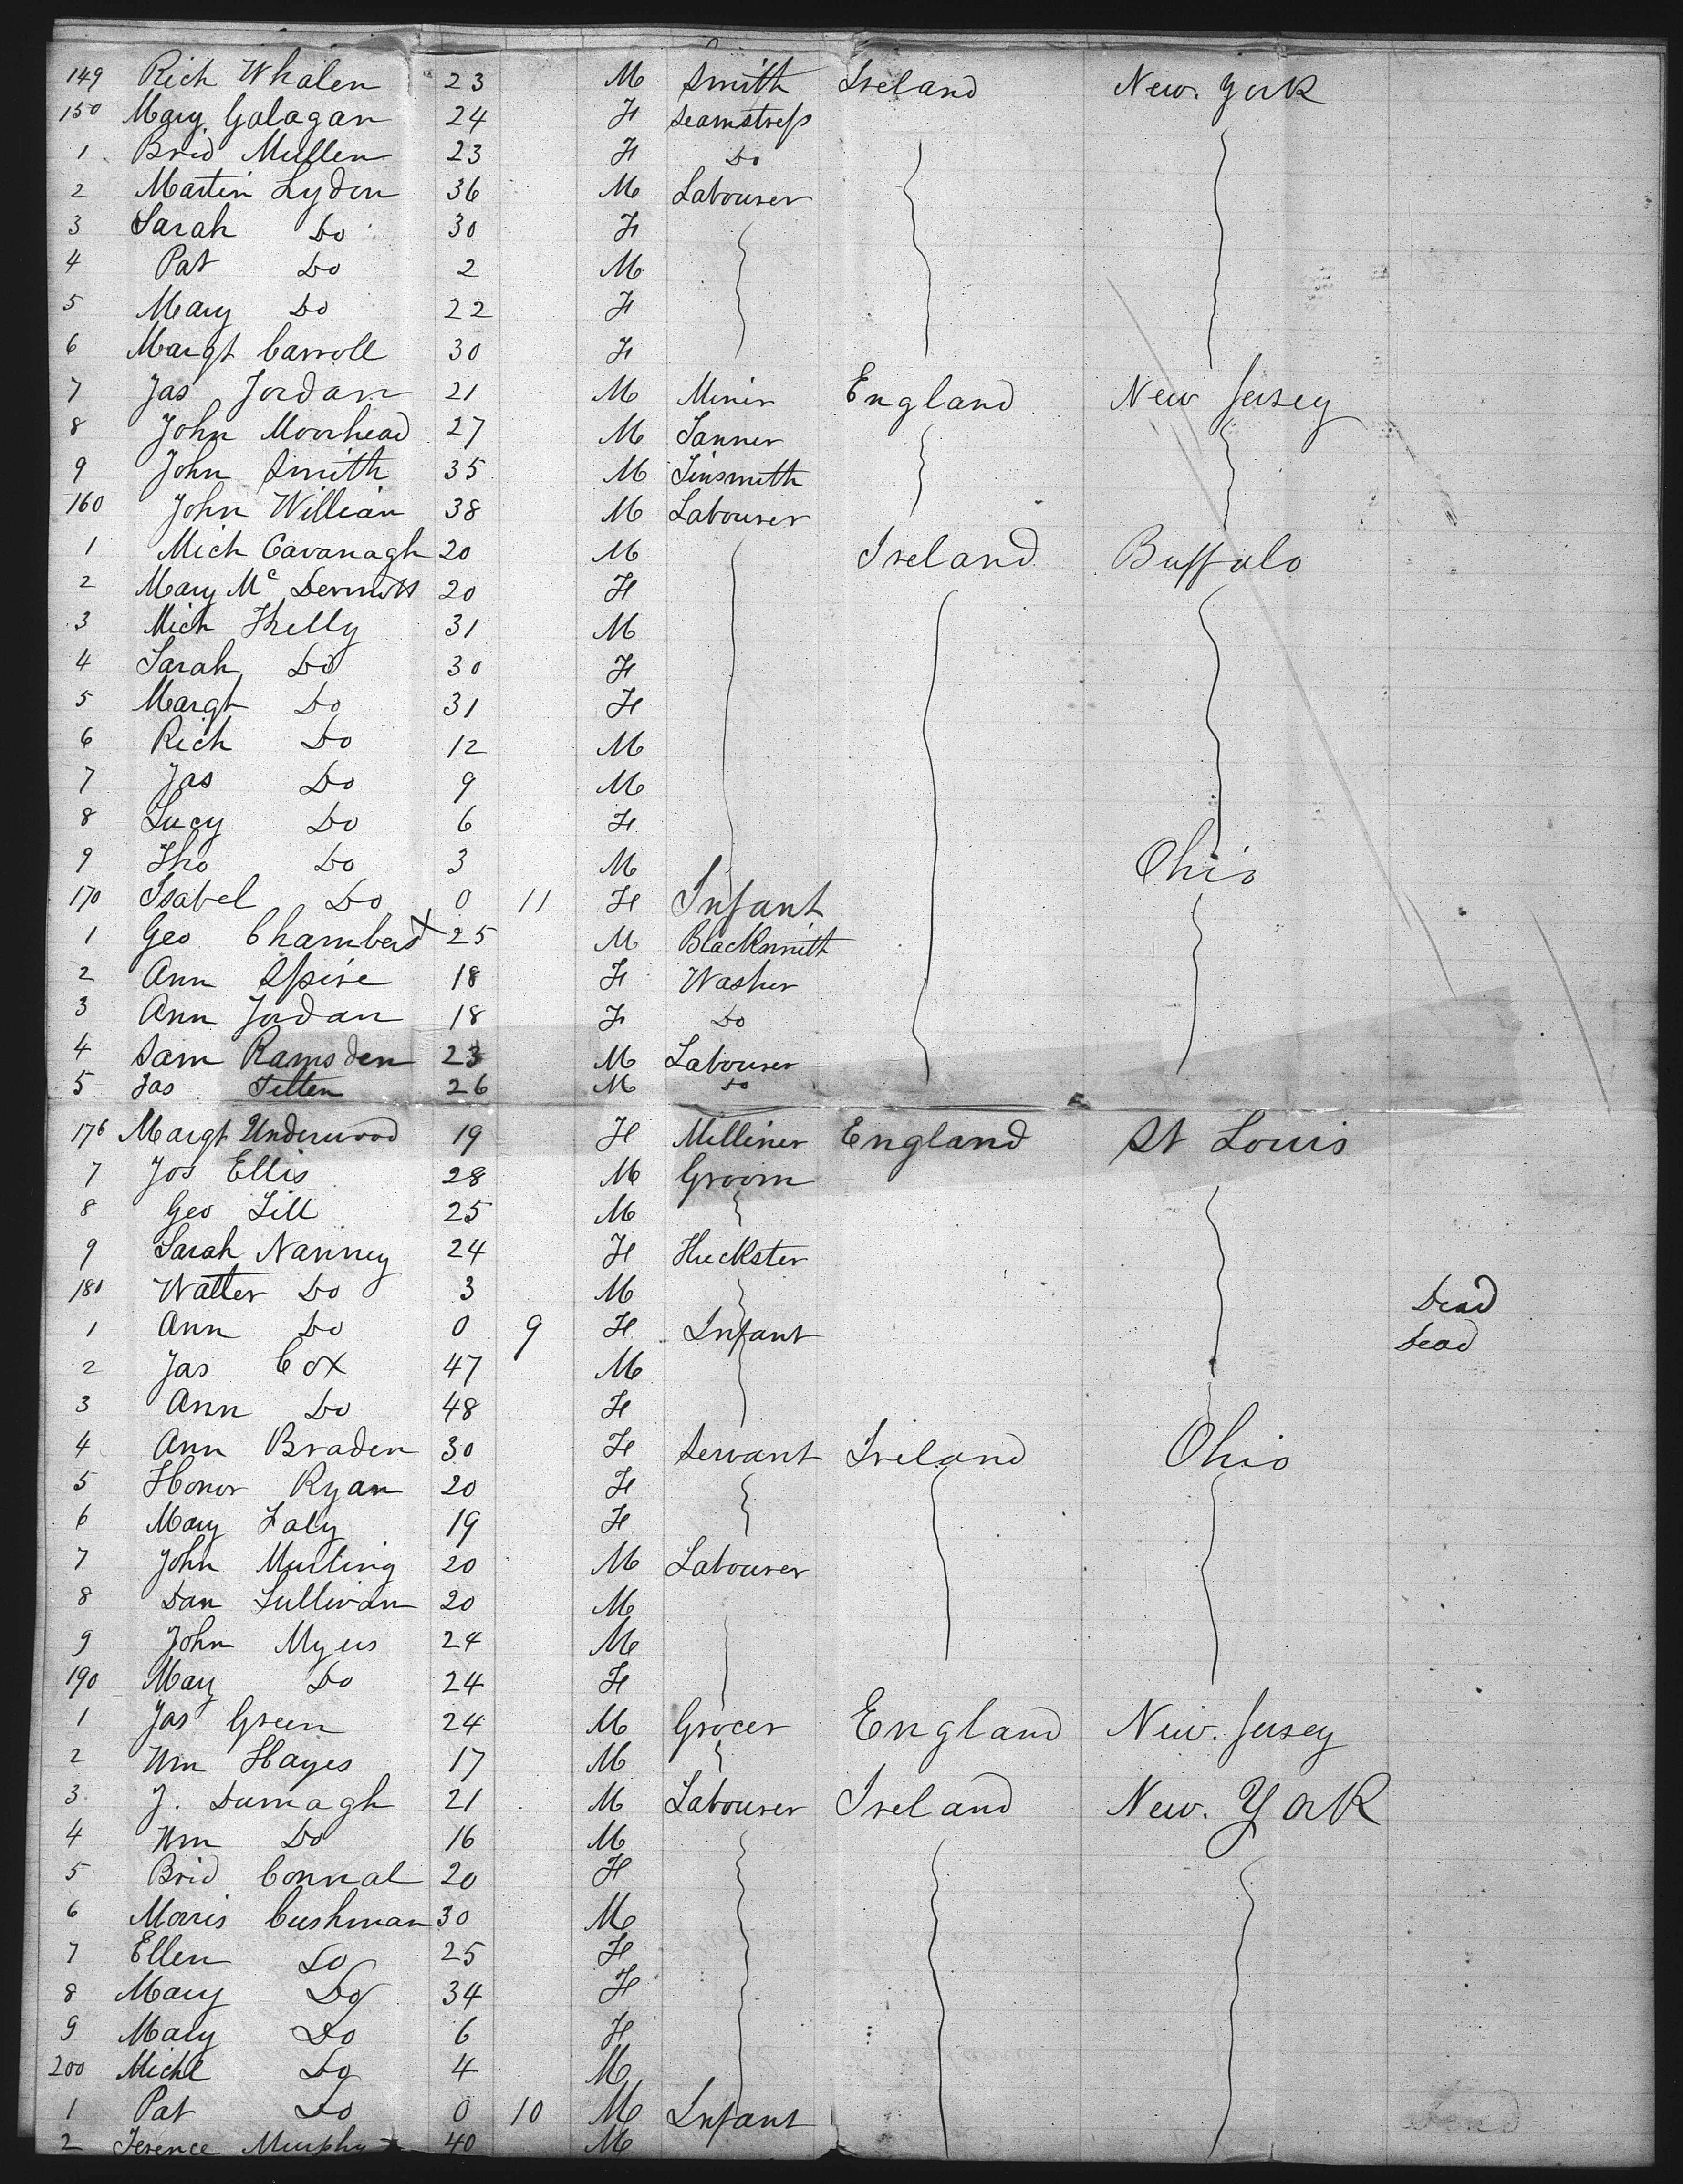 149 Rich Whalen 23 M Smith Ireland New. York
150 Mary Galagan 24 F Seamstress
1 Brid Mullen 23 F Do
2 Martin Lydon 36 M Labourer
3 Sarah Do 30 F
4 Pat Do 2 M
5 Mary Do 22 F
6 Margt Carroll 30 F
7 Jas Jordan 21 M Miner England New Jersey
8 John Moorhead 27 M Tanner
9 John Smith 35 M Tinsmith
160 John Willian 38 M Labourer
1 Mich Cavanagh 20 M Ireland Buffalo
2 Mary Mc Dermott 20 F
3 Mich Kelly 31 M
4 Sarah Do 30 F
5 Margt Do 31 F
6 Rich Do 12 M
7 Jas Do 9 M
8 Lucy Do 6 F
9 Tho Do 3 M Ohio
170 Isabel Do 0 11 F Infant
1 Geo Chambers X 25 M Blacksmith
2 Ann Spire 18 F Washer
3 Ann Jordan 18 F Do
4 Sam Ramsden 23 M Labourer
5 Jas 26 M Do
176 Margt Underwood 19 F Milliner England St Louis
7 Jos Ellis 28 M Groom
8 Geo Lill 25 M
9 Sarah Nanney 24 F Huckster
180 Walter Do 3 M Dead
1 Ann Do 0 9 F Infant Dead
2 Jas Cox 47 M
3 Ann Do 48 F
4 Ann Braden 30 F Servant Ireland Ohio
5 Honor Ryan 20 F
6 Mary 19 F
7 John 20 M Labourer
8 Dan Sullivan 20 M
9 John Myers 24 M
190 Mary Do 24 F
1 Jas Green 24 M Grocer England New. Jersey
2 Wm Hayes 17 M
3 J. Durnagh 21 M Labourer Ireland New. York
4 Wm Do 16 M
5 Brid Connal 20 F
6 Morris Cushman 30 M
7 Ellen Do 25 F
8 Mary Do 34 F
9 Mary Do 6 F
200 Michl Do 4 M
1 Pat Do 0 10 M Infant Dead
2 Terence Murphy 40 M